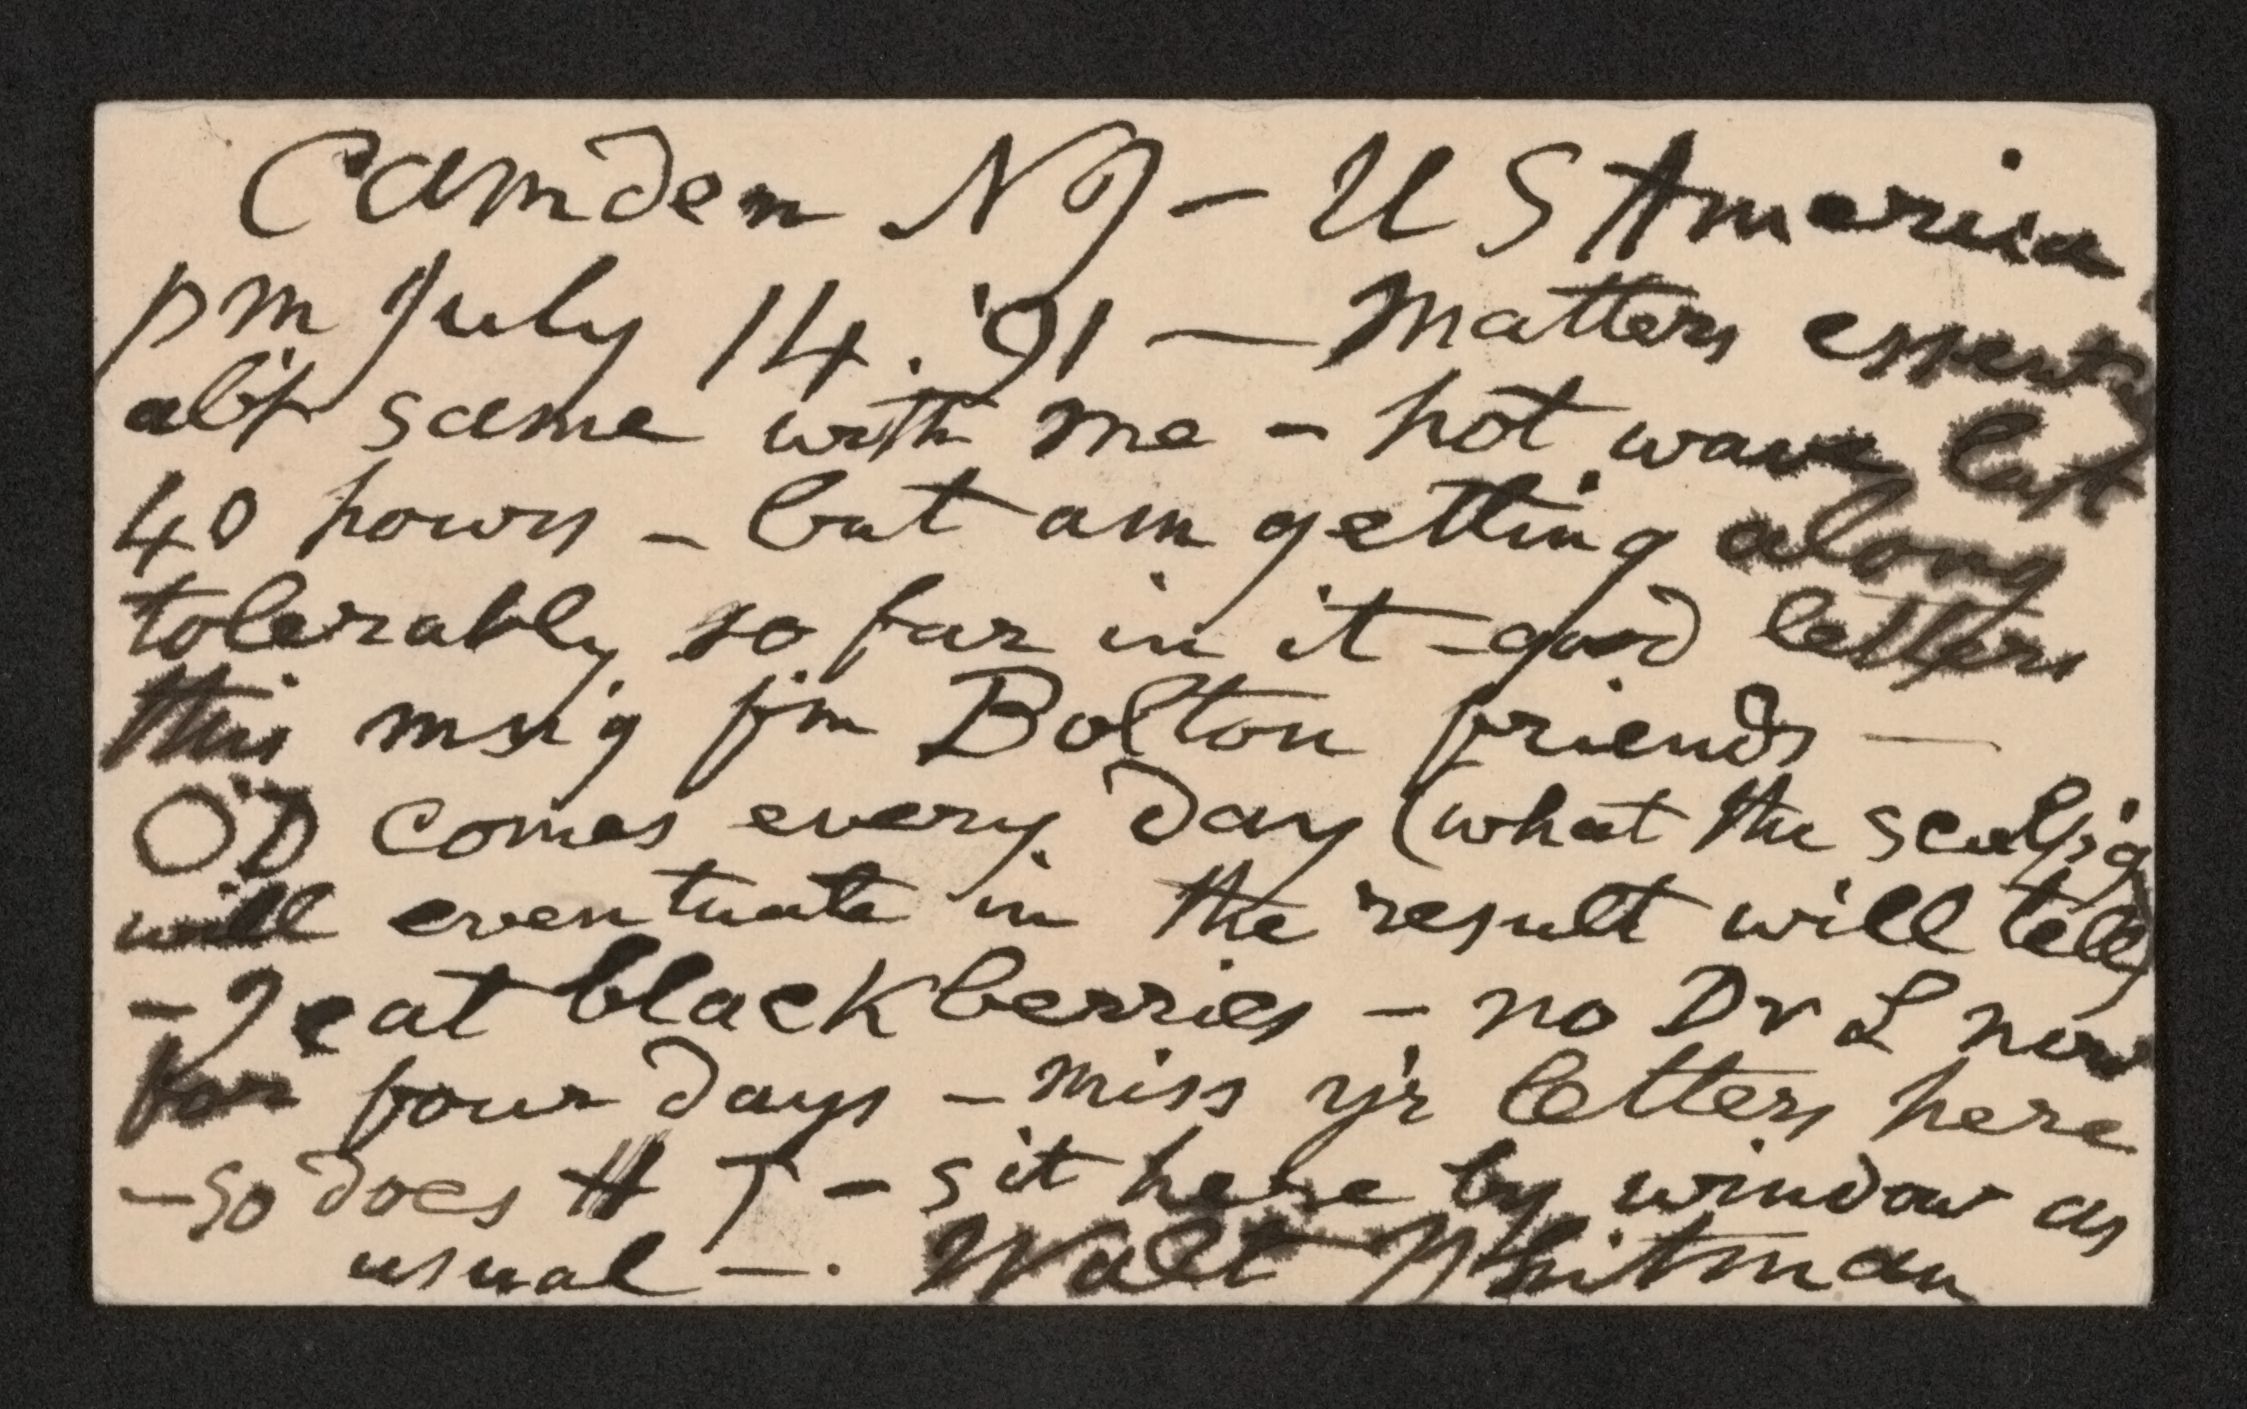 Camden NJ – U S America
pm July 14. '91 — Matters essent'y
ab't same with me – hot wave last
40 hours – but am getting along
tolerably so far in it – good letters
this mn'g f'm Bolton friends —
O'D comes every day (what the sculp'g
will eventuate in the result will tell)
– I eat blackberries – no Dr L now
for four days – miss y'r letters here
– so does H T – sit here by window as
usual —. Walt Whitman